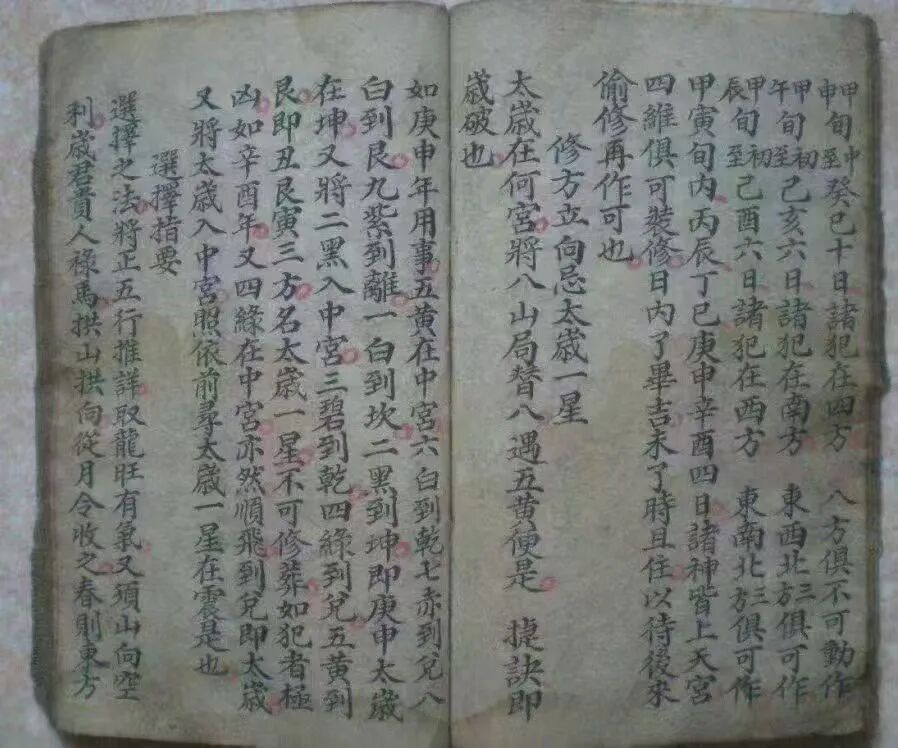 甲旬中申至癸巳十日諸犯在四方 八方俱不可動作
甲旬初午至己亥六日諸犯在南方 東西北三方俱可作
甲旬初辰至己酉六日諸犯在西方 東南北三方俱可作
甲寅旬內丙辰丁巳庚申辛酉四日諸神皆上天宮
四維俱可裝修日內了畢吉未了時且住以待後來
偷修再作可也
修方立向忌太歲一星
太歲在何宮將八山局替八遇五黃便是 捷訣即
歲破也
如庚申年用事五黃在中宮六白到乾七赤到兌八
白到艮九紫到離一白到坎二黑到坤即庚申太歲
在坤又將二黑入中宮三碧到乾四綠到兌五黃到
艮即丑艮寅三方名太歲一星不可修葬如犯者極
凶如辛酉年又四綠在中宮亦然順飛到兌即太歲
又將太歲入中宮照依前尋太歲一星在震是也
選擇指要
選擇之法將正五行推詳取龍旺有氣又須山向空
利歲君貴人祿馬拱山拱向從月令收之春則東方